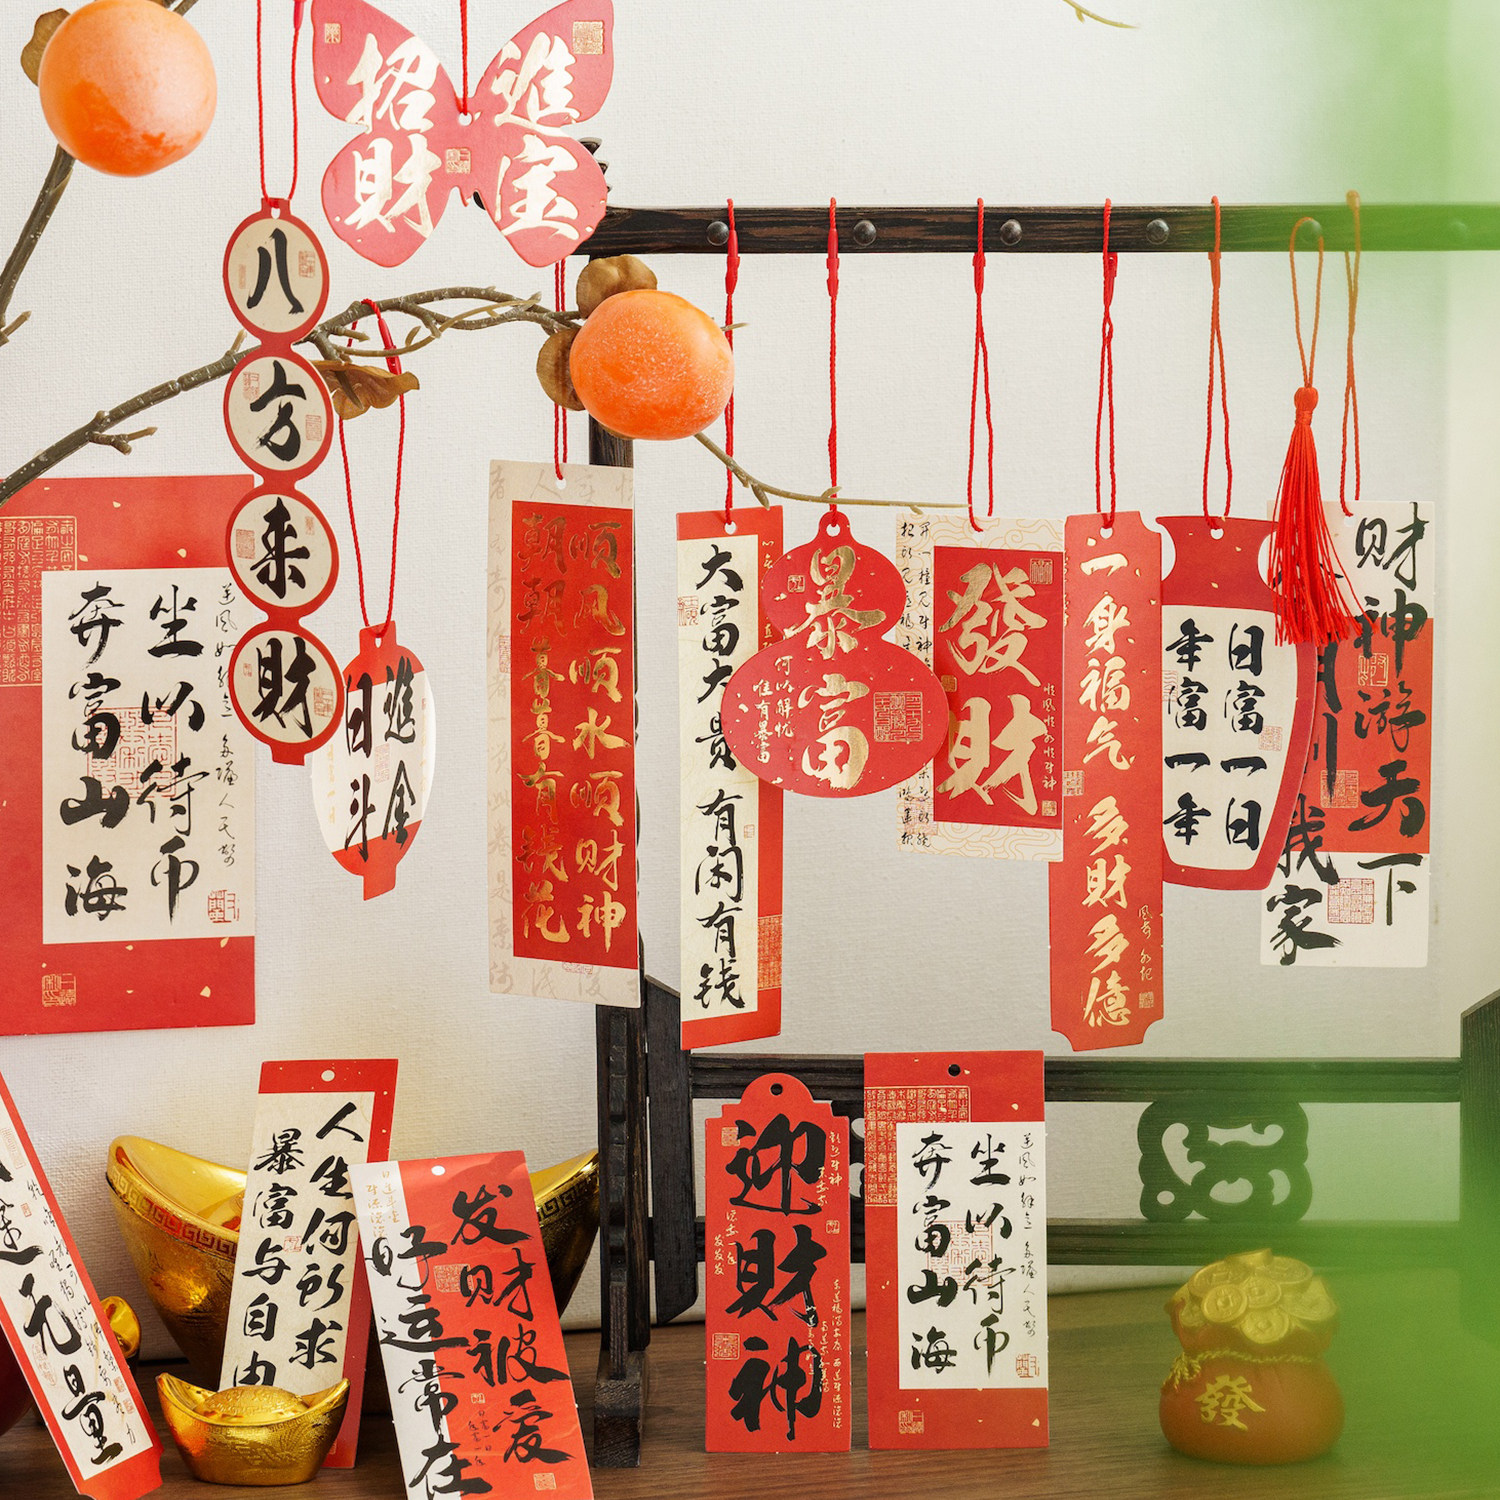 招財
進宝
八方来財
坐以待币
奔富山海
進金
日斗
顺风顺水顺财神
朝朝暮暮有钱花
大富大贵 有闲有钱
暴富
何以解忧
唯有暴富
發財
一身福气 多財多億
日富一日
年富一年
财神游天下
我家
人生何所求
暴富与自由
发财被爱
好运常在
迎財神
坐以待币
奔富山海
无量
發